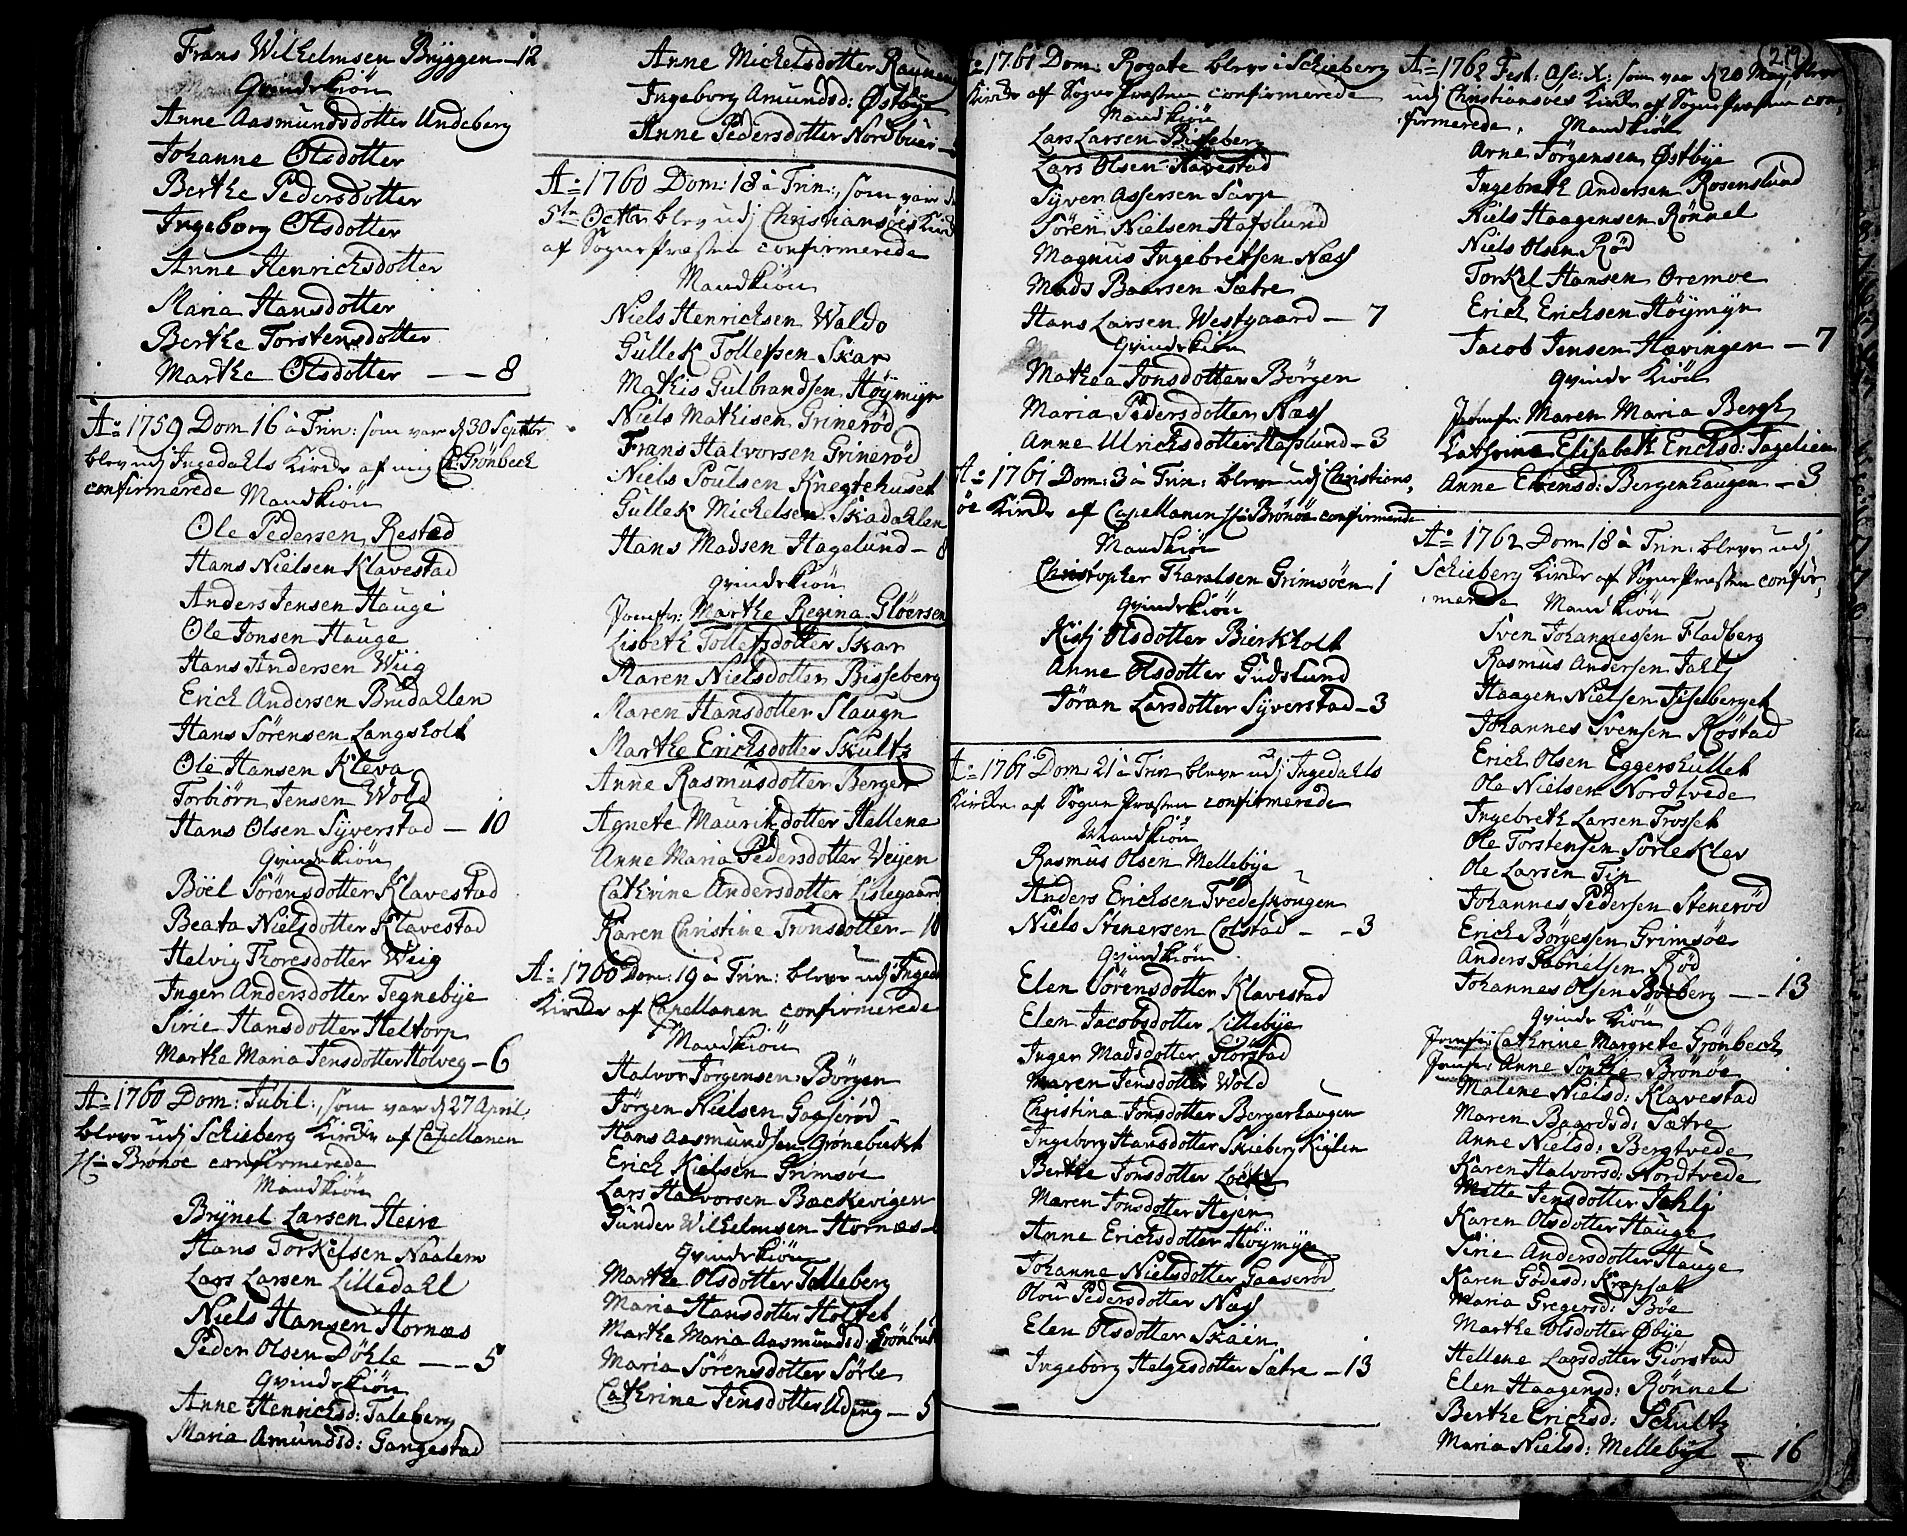 Frans Wilhelmsen Bryggen - 12
Qvindekiön
Anne Aasmundsdotter Undeberg
Johanne Olsdotter
Berthe Pedersdotter
Ingeborg Olsdotter
Anne Henrichsdotter
Maria Hansdotter
Berthe Torstensdotter
Marthe Olsdotter - - 8
Ao 1759 Dom 16 à Trin: som var d 30 Septbr
blev udj Ingedahls Kirche af mig Grönbech
confirmerede Mandkiön
Ole Pedersen Restad
Hans Nielsen Klavestad
Anders Jensen Hauge
Ole Jonsen Hauge
Hans Andersen Wiig
Erich Andersen Brudahlen
Hans Sörensen Langsholt
Ole Hansen Kleva
Torbiörn Jensen Wold
Hans Olsen Syverstad - 10
Qvindekiön
Böel Sörensdotter Klavestad
Beata Nielsdotter Klavestad
Helvig Thoresdotter Wiig
Inger Andersdotter Tegnebye
Sirie Hansdotter Heltorp
Marthe Maria Jensdotter Holveg - 6
Ao 1760 Dom: Jubil:, som var d 27 April
bleve udj Schieberg Kirche af Capellanen
Brönöe confirmerede
Mandkiön
Brynel Larsen Heire
Hans Torkelsen Naalem
Lars Larsen Lilledahl
Niels Hansen Hornæs
Peder Olsen Döhle - - 5
Qvindekiön
Anne Henrichsd: Taleberg
Maria Amundsd: Gangestad
Anne Michelsdotter
Ingeborg Amundsd: Østbye
Anne Pedersdotter Nordbuer
Ao 1760 Dom: 18 à Trin:, som var d
5te Octbr blev udj Christiansöes Kirch
af Sogne Præsten confirmerede
Mandkiön
Niels Henrichsen Waldo
Gullek Tollefsen Skar
Mathis Gulbrandsen Höymyr
Niels Mathisen Grineröd
Frans Halvorsen Grineröd
Niels Poulsen Knegtehuset
Gullek Michelsen Skadahlen
Hans Madsen Hagelund - 8
Qvindekiön
Jomfr: Marthe Regina Glöersen
Lisbeth Tollefsdotter Skar
Maren Nielsdotter Bisseberg
Maren Hansdotter Slaugn
Marthe Erichsdotter Skultz
Anne Rasmusdotter Berger
Agnete Mauritzdotter Hellene
Anne Maria Pedersdotter Veyen
Cathrine Andersdotter Lislegaard
Karen Christine Tronsdotter - 10
Ao 1760 Dom: 19 à Trin: bleve udj Inged
Kirche af Capellanen confirmerede
Mandkiön
Halvor Jorgensen Börgen
Jörgen Nielsen Gaaseröd
Hans Aasmundsen Grönebucht
Erich Kielsen Grimsöe
Lars Halvorsen Backevigen
Gunder Wilhelmsen Hornæs
Qvindekiön
Marthe Olsdotter Talleberg
Maria Hansdotter Holtet
Marthe Maria Aasmundsd: Grönbu
Maria Sörensdotter Sörle
Cathrine Jensdotter Uding - 5
Ao 1761 Dom: Rogate bleve i Schieberg
Kirche af Sogne Præsten confirmerede
Mandkiön
Lars Larsen Bisseberg
Lars Olsen Havestad
Syver Assersen Sarp
Sören Nielsen Hafslund
Magnus Ingebretsen Næss
Mads Baarsen Sætre
Hans Larsen Westgaard - 7
Qvindekiön
Mathea Jonsdotter Börgen
Maria Pedersdotter Næss
Anne Ulrichsdotter Hafslund - 3
Ao 1761 Dom: 3 à Trin: bleve udj Christians,
öe Kirche af Capellanen Brönöe confirmerede
Mandkiön
Christopher Tharalsen Grimsöen 1
Qvindekiön
Kistj Olsdotter Bierkholt
Anne Olsdotter Gudslund
Jöran Larsdotter Syverstad - 3
Ao 1761 Dom 21 à Trin bleve udj Ingedahls
Kirche af Sogne Præsten confirmerede
Mandkiön
Rasmus Olsen Mellebye
Anders Erichsen Tvedeskougen
Niels Stenersen Colstad - - 3
Qvindekiön
Elen Sörensdotter Klavestad
Elen Jacobsdotter Lillebye
Inger Madsdotter Giörstad
Maren Jensdotter Wold
Christina Jonsdotter Bergerhaugen
Ingeborg Hansdotter Skieberg Kiylen
Berthe Jonsdotter Löcke
Maren Jonsdotter Hejen
Anne Erichsdotter Höymyr
Johanne Nielsdotter Gaaseröd
Olou Pedersdotter Næss
Elen Olsdotter Skain
Ingeborg Helgesdotter Sætre - 13
(219)
Ao 1762 Fest: Asc: X: som var d 20 May bleve
udj Christiansöes Kirche af Sogne Præsten con,
firmerede. Mandkiön
Arne Jörgensen Østbye
Ingebreth Andersen Rosenslund
Niels Haagensen Rönnel
Niels Olsen Röd
Torkel Hansen Oremoe
Erich Erichsen Höymyr
Jacob Jensen Hævingen - 7
Qvinde Kiön
Jomfr: Maren Maria Bergh
Cathrine Elisabeth Erichsd: Fagelien
Anne Evensd: Bergenhaugen - 3
Ao 1762 Dom 18 à Trin: bleve udj
Schieberg Kirche af Sogne Præsten confir,
merede Mandkiön
Sven Johannessen Fladberg
Rasmus Andersen Jahlj
Haagen Nielsen Tisselberget
Johannes Svensen Röstad
Erich Olsen Eggershullet
Ole Nielsen Nordtvede
Ingebreth Larsen Trosset
Ole Torstensen Sörleklev
Ole Larsen Tip
Johannes Pedersen Steneröd
Erich Börgessen Grimsöe
Anders Gabrielsen Röd
Johannes Olsen Borberg - - 13
Qvinde Kiön
Jomfr: Cathrine Margrete Grönbech
Jomfr: Anne Sophie Brönöe
Malene Nielsd: Klavestad
Maren Baardsd: Sætre
Anne Nielsd: Bergtvede
Karen Halvorsd: Nordtvede
Mette Jensdotter Jahlj
Karen Olsdotter Hauge
Sirie Andersdotter Hauge
Karen Godesd: Krapsæt
Maria Gregersd: Böe
Marthe Olsdotter Øbye
Hellene Larsdotter Giörstad
Elen Haagensd: Rönnel
Berthe Erichsd: Schultz
Maria Nielsd: Mellebye - 16